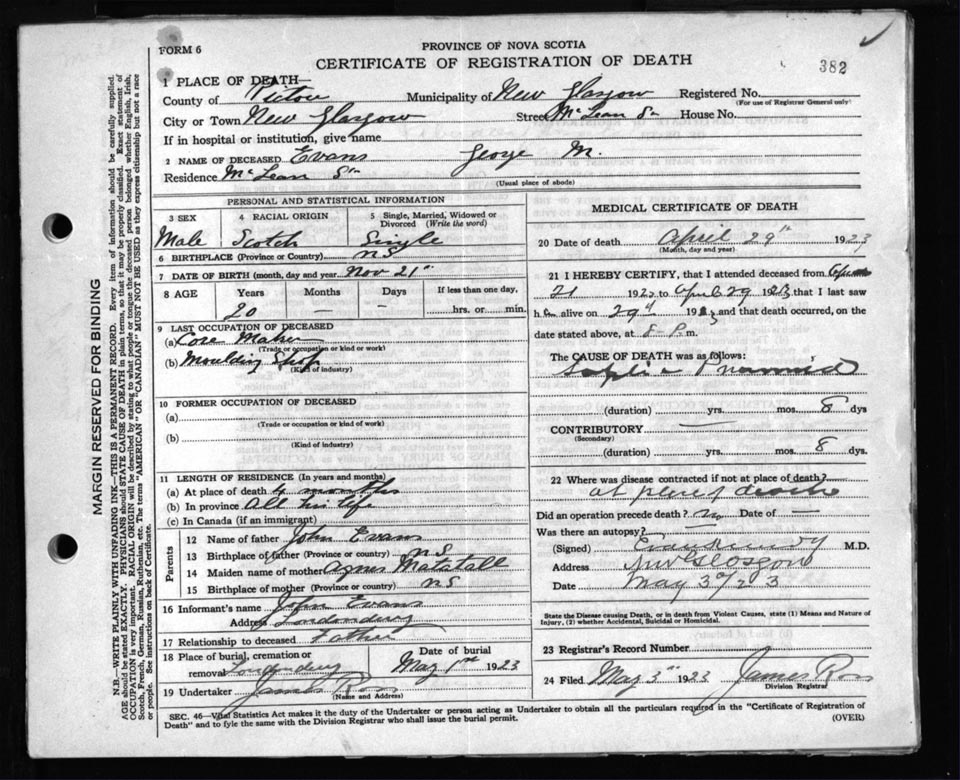 FORM 6
PROVINCE OF NOVA SCOTIA
CERTIFICATE OF REGISTRATION OF DEATH
382
1 PLACE OF DEATH—
County of Pictou Municipality of New Glasgow Registered No.
(For use of Registrar General only)
City or Town New Glasgow Street McLean St House No.
If in hospital or institution, give name
2 NAME OF DECEASED Evans George M.
Residence McLean St
(Usual place of abode)
PERSONAL AND STATISTICAL INFORMATION
3 SEX 4 RACIAL ORIGIN 5 Single, Married, Widowed or Divorced (Write the word)
Male Scotch Single
6 BIRTHPLACE (Province or Country) NS
7 DATE OF BIRTH (month, day and year) Nov 21st
8 AGE Years Months Days If less than one day,
20 — — hrs. or min.
9 LAST OCCUPATION OF DECEASED
(a) Core Maker
(Trade or occupation or kind of work)
(b) Moulding Shop
(Kind of industry)
10 FORMER OCCUPATION OF DECEASED
(a)
(Trade or occupation or kind of work)
(b)
(Kind of industry)
11 LENGTH OF RESIDENCE (In years and months)
(a) At place of death 4 months
(b) In province All his life
(c) In Canada (if an immigrant)
Parents
12 Name of father John Evans
13 Birthplace of father (Province or country) NS
14 Maiden name of mother Agnes Matatall
15 Birthplace of mother (Province or country) NS
16 Informant's name John Evans
Address Londonderry
17 Relationship to deceased Father
18 Place of burial, cremation or removal Londonderry Date of burial May 1st 1923
19 Undertaker James Ross
(Name and Address)
MEDICAL CERTIFICATE OF DEATH
20 Date of death April 29th 1923
(Month, day and year)
21 I HEREBY CERTIFY, that I attended deceased from April
21 1923 to April 29 1923 that I last saw
him alive on 29th 1923 and that death occurred, on the
date stated above, at 8 P. m.
The CAUSE OF DEATH was as follows:
Septic Pneumonia
(duration) yrs. mos. 8 dys
CONTRIBUTORY —
(Secondary)
(duration) yrs. mos. 8 dys
22 Where was disease contracted if not at place of death?
at place of death
Did an operation precede death? no Date of —
Was there an autopsy? —
(Signed) Kennedy M.D.
Address New Glasgow
Date May 3rd/23
State the Disease causing Death, or in death from Violent Causes, state (1) Means and Nature of Injury, (2) whether Accidental, Suicidal or Homicidal.
23 Registrar's Record Number
24 Filed May 3rd 1923 James Ross
Division Registrar
SEC. 46—Vital Statistics Act makes it the duty of the Undertaker or person acting as Undertaker to obtain all the particulars required in the "Certificate of Registration of
Death" and to fyle the same with the Division Registrar who shall issue the burial permit.
(OVER)
MARGIN RESERVED FOR BINDING
N.B.—WRITE PLAINLY WITH UNFADING INK—THIS IS A PERMANENT RECORD. Every item of information should be carefully supplied.
AGE should be stated EXACTLY. PHYSICIANS should STATE CAUSE OF DEATH in plain terms, so that it may be properly classified. Exact statement of
OCCUPATION is very important. RACIAL ORIGIN will be described by stating to what people or tongue the deceased person belonged whether English, Irish,
Scotch, French, German, Russian, Ruthenian, etc. The terms "AMERICAN" OR "CANADIAN" MUST NOT BE USED as they express citizenship but not a race
or people. See instructions on back of Certificate.